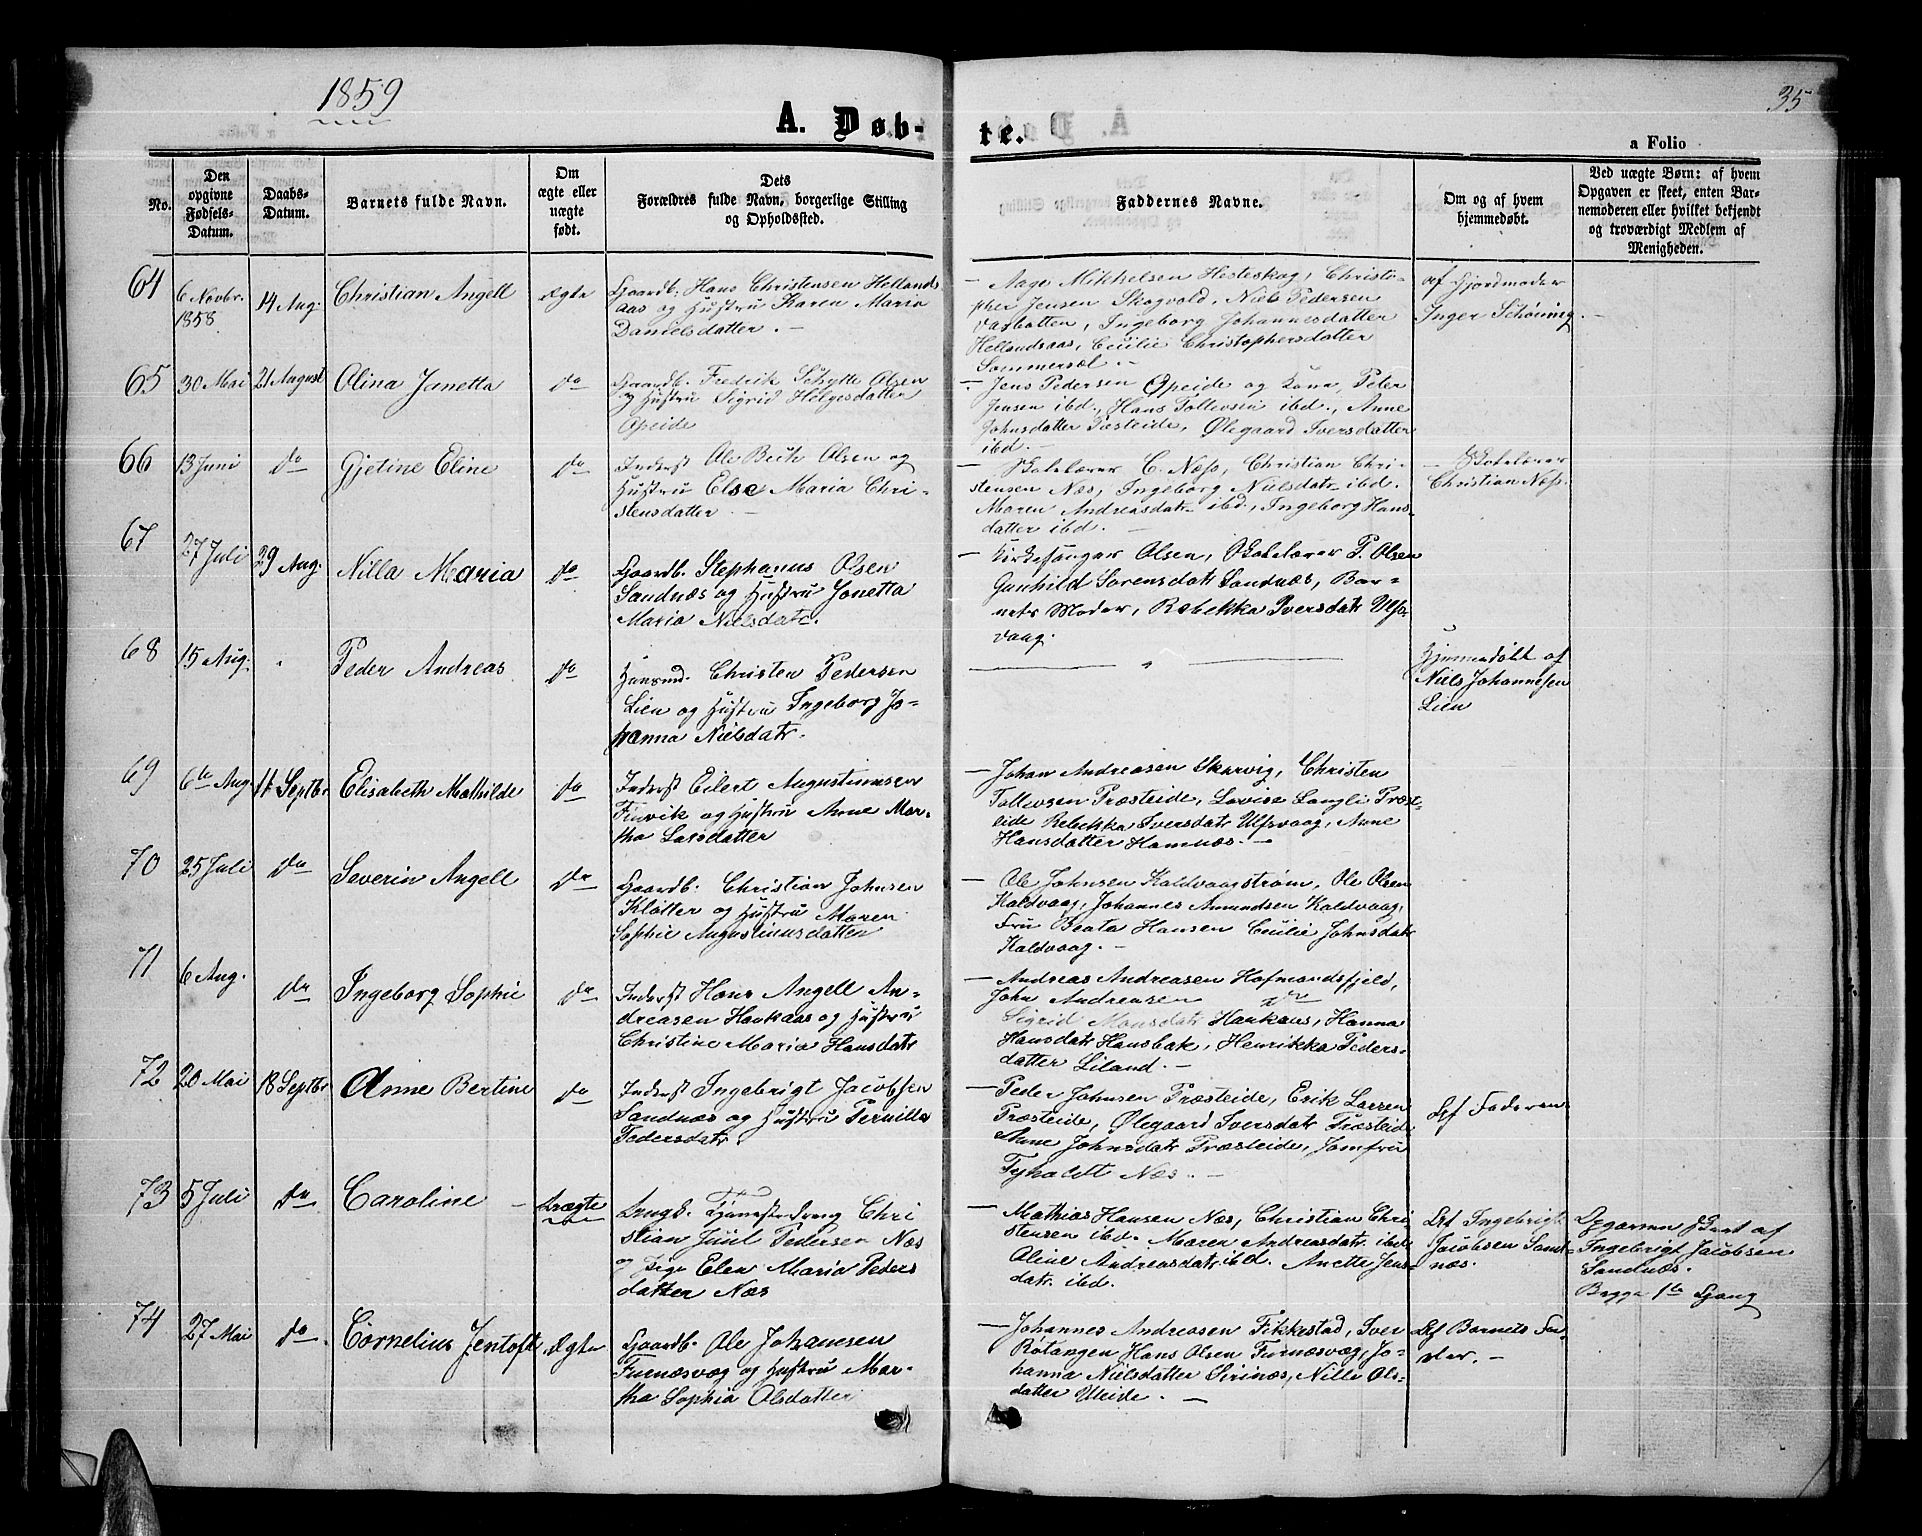 1859
35
A. Døb-
te.
a Folio
No.
Den
opgivne
Fødsels-
Datum.
Daabs-
Datum.
Barnets fulde Navn.
Om
ægte eller
uægte
født.
Dets
Forældres fulde Navn, borgerlige Stilling
og Opholdssted.
Faddernes Navne.
Om og af hvem
hjemmedøbt.
Ved uægte Børn: af hvem
Opgaven er skeet, enten Bar-
nemoderen eller hvilket bekjendt
og troværdigt Medlem af
Menigheden.
64
6 Novbr.
1858
14 Aug.
Christian Angell
ægte
Gaardb. Hans Christensen Hellands
aas og Hustru Karen Maria
Danielsdatter. -
- Aage Mikkelsen Hesteskog, Christo-
pher Jensen Skogvold, Niels Pedersen
Vasbotten, Ingeborg Johannesdatter
Hellandsaas, Cecilie Christophersdatter
Sommersæl. -
af Gjordmoder
Inger Schöning. -
65
30 Mai
21 August
Olina Janetta
do
Gaardb. Fredrik Schytte Olsen
og Hustru Sigrid Helgesdatter
Opeide
- Jens Pedersen Opeide og Kone, Peter
Jensen ibd., Hans Tollevsen ibd., Anne
Johnsdatter Præsteide, Ølegaard Iversdatter
ibd. -
66
13 Juni
do
Gjetine Eline
do
Inderst Ole Beck Olsen og
Hustru Else Maria Chri-
stensdatter. -
- Skolelærer C. Næss, Christian Chri-
stensen Næs, Ingeborg Nielsdatr ibd.
Maren Andreasdatr ibd., Ingeborg Hans-
datter ibd. -
- Skolelærer
Christian Næss.
67
27 Juli
29 Aug.
Nilla Maria
do
Gaardb. Stephanus Olsen
Sandnæs og Hustru Jonetta
Maria Nielsdatr.
- Kirkesanger Olsen, Skolelærer P. Olsen
Gunhild Sørensdatr Sandnæs, Bar-
nets Moder, Rebekka Iversdatr Ulfs-
vaag.
68
15 Aug.
"
Peder Andreas
do
Huusmd. Christen Pedersen
Lien og Hustru Ingeborg Jo-
hanna Nielsdatr.
"
Hjemmedøbt af
Niels Johannesen
Lien
69
6te Aug
11 Septbr
Elisabeth Mathilde
do
Inderst Eilert Augustinusen
Finvik og Hustru Anne Mar-
tha Larsdatter
- Johan Andreasen Skarvig, Christen
Tollevsen Præsteide, Lovise Langli Præst-
eide Rebekka Iversdatr Ulfsvaag, Anne
Hansdatter Hamnæs. -
70
25 Juli
do
Severin Angell
do
Gaardb. Christian Johnsen
Kløtter og Hustru Maren
Sophie Augustinusdatter
- Ole Johnsen Kaldvaagstrøm, Ole Olsen
Kaldvaag, Johannes Amundsen Kaldvaag,
Fru Beata Hansen Cecilie Johnsdatr
Kaldvaag. -
71
6 Aug.
do
Ingeborg Sophie
do
Inderst Hans Angell An-
dreasen Haukaas og Hustru
Christine Maria Hansdatr
- Andreas Andreasen Hofmandsfjeld,
John Andreasen do
Sigrid Monsdatr Haukaas, Hanna
Hansdatr Hansbak, Henrikka Peders-
datter Liland. -
72
20 Mai
18 Septbr
Anne Bertine
do
Inderst Ingebrigt Jacobsen
Sandnæs og Hustru Pernille
Pedersdatr
- Peder Johnsen Præsteide, Erik Larsen
Præsteide, Ølegaard Iversdatr Præsteide
Anne Johnsdatr Præsteide, Jomfru
Tyholdt Næs. -
Af Faderen
73
5 Juli
do
Caroline -
Uægte
Ungk. Tjenestedreng Chri
stian Juul Pedersen Næs
og Pige Elen Maria Peders
datter Næs
- Mathias Hansen Næs, Christian Chri-
stensen ibd. Maren Andreasdatr ibd.
Oline Andreasdatr ibd. Anette Jens-
datr ibd.
Af Ingebrigt
Jacobsen Sand-
næs.
Opgaven skeet af
Ingebrigt Jacobsen
Sandnæs.
Begge 1te Gang
74
27 Mai
do
Cornelius Jentoft
Ægte
Gaardb. Ole Johansen
Furnæsvæg og Hustru Mar-
tha Sophia Olsdatter
- Johannes Andreasen Fikkestad, Iver
Røtangen Hans Olsen Furnæsvæg, Jo-
hanna Nielsdatter Sirinæs, Nille Ols-
datter Uleide. -
Af Barnets Fa-
der. -